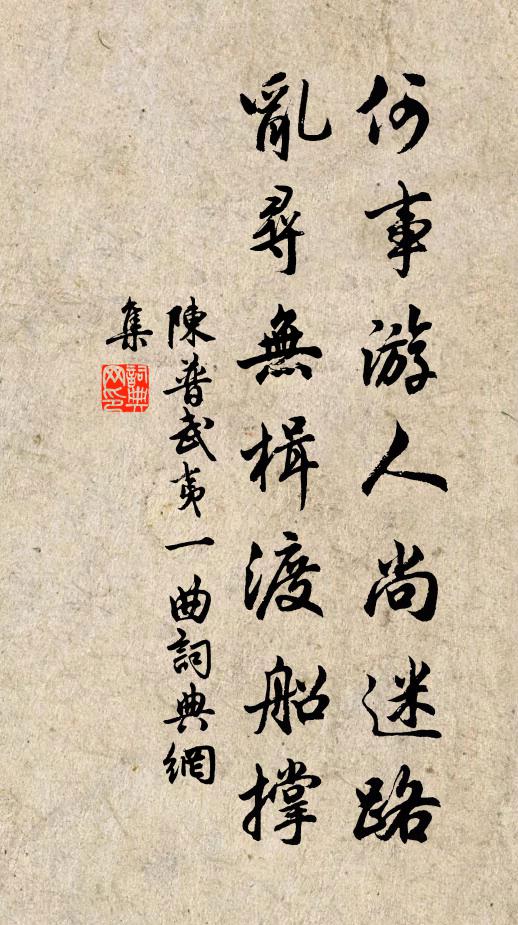 何事游人尚迷路
亂尋無楫渡船撐
陳普武夷一曲詞典網
集
詞典網印